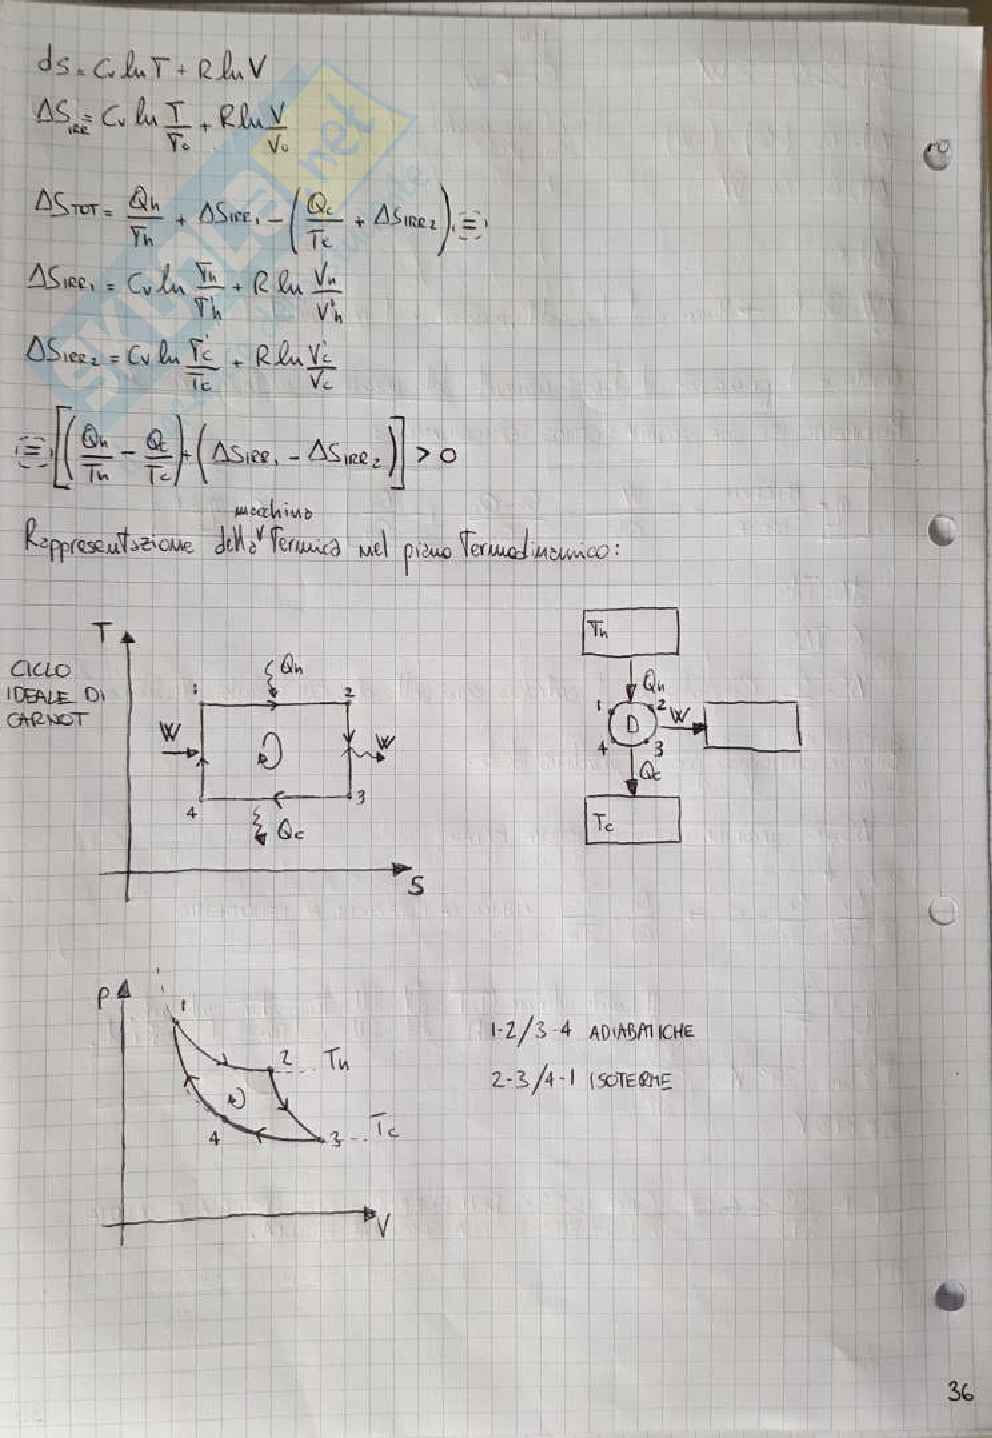 dS = Cv ln T + R ln V
ΔS_IRR = Cv ln T/T₀ + R ln V/V₀
ΔS_TOT = Qh/Th + ΔS_IRR₁ - (Qc/Tc + ΔS_IRR₂) ≡
ΔS_IRR₁ = Cv ln Th/T'h + R ln Vh/V'h
ΔS_IRR₂ = Cv ln T'c/Tc + R ln V'c/Vc
≡ [(Qh/Th - Qc/Tc) + (ΔS_IRR₁ - ΔS_IRR₂)] > 0
macchina
Rappresentazione della Termica nel piano Termodinamico:
CICLO
IDEALE DI
CARNOT
T
Qh
1
2
W
W
4
3
Qc
S
Th
Qh
1
2
D
W
4
3
Qc
Tc
P
1
2
Th
4
3
Tc
V
1-2/3-4 ADIABATICHE
2-3/4-1 ISOTERME
36
skuola.net